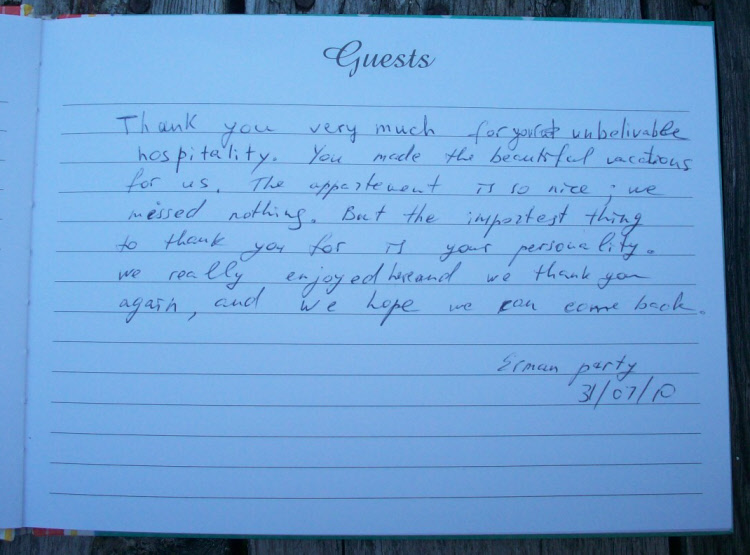 Guests
Thank you very much for your unbelivable
hospitality. You made the beautiful vacations
for us. The appartement is so nice; we
missed nothing. But the importest thing
to thank you for is your personality.
we really enjoyed here and we thank you
again, and we hope we can come back.
Erman party
31/07/10